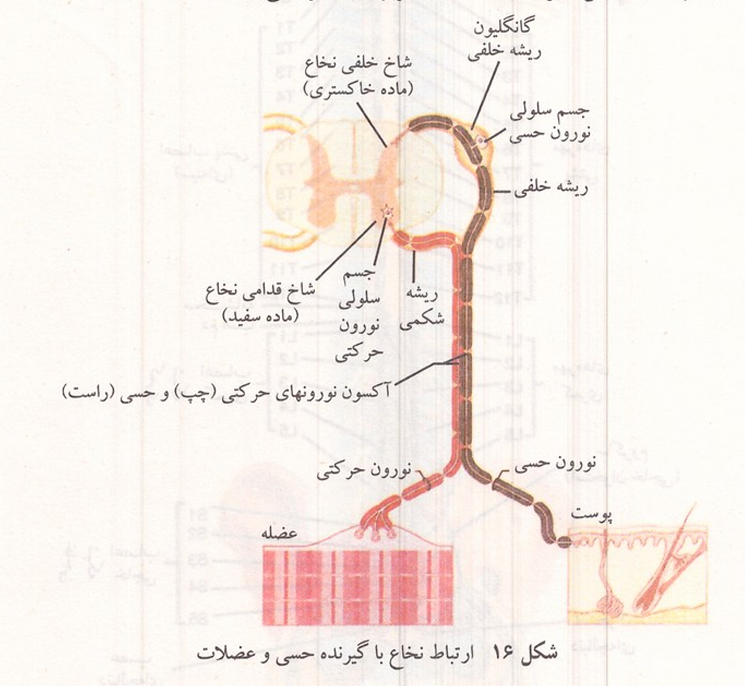 گانگلیون
ریشه خلفی
شاخ خلفی نخاع
(ماده خاکستری)
جسم سلولی
نورون حسی
ریشه خلفی
جسم
سلولی
نورون
حرکتی
ریشه
شکمی
شاخ قدامی نخاع
(ماده سفید)
آکسون نورونهای حرکتی (چپ) و حسی (راست)
نورون حسی
نورون حرکتی
پوست
عضله
شکل ۱۶ ارتباط نخاع با گیرنده حسی و عضلات